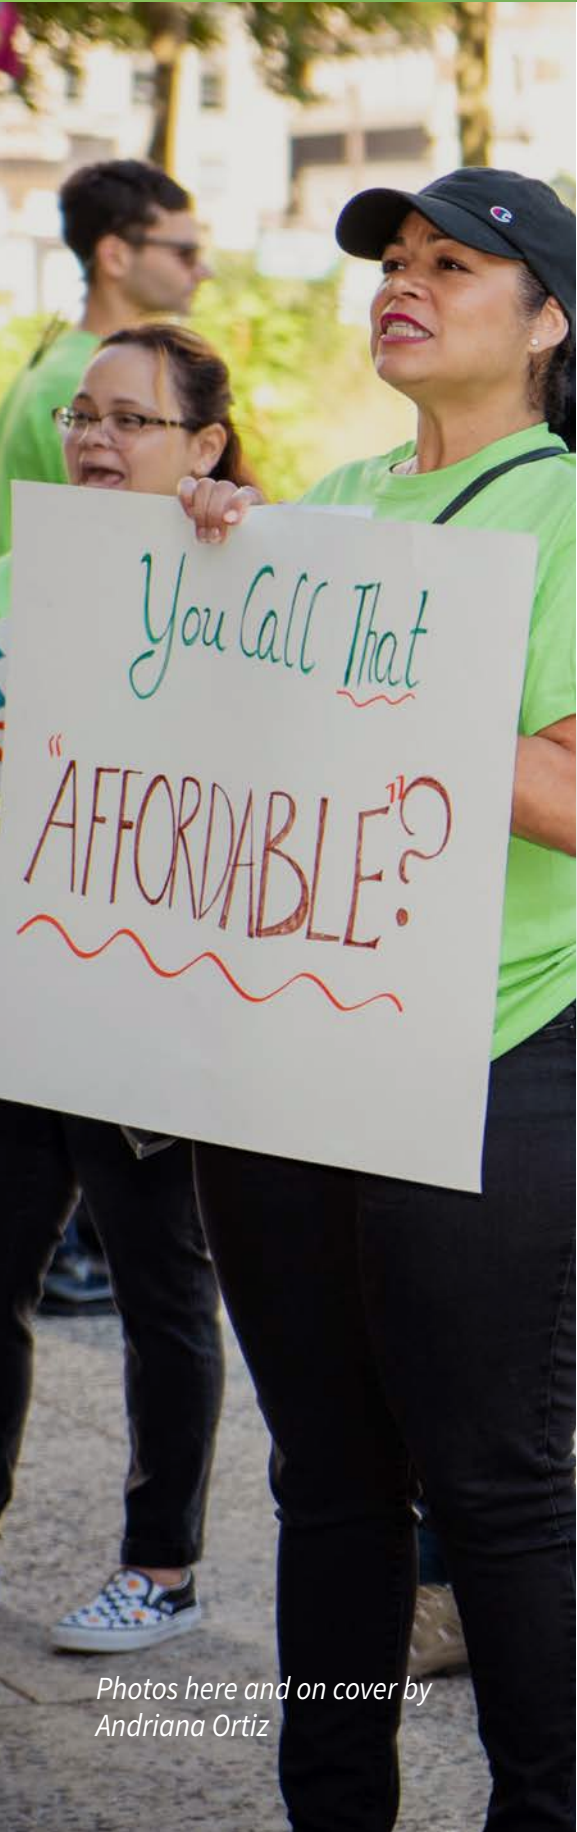 You Call That
"AFFORDABLE"?
Photos here and on cover by
Andriana Ortiz